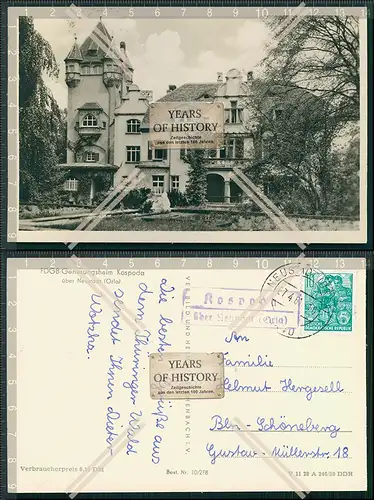 YEARS
OF HISTORY
Zeitgeschichte
aus den letzten 100 Jahren.
FDGB-Genesungsheim Kospoda
über Neustadt (Orla)
die besten Grüße aus
dem Thüringer Wald
sendet Ihnen Dieter
YEARS
OF HISTORY
Zeitgeschichte
aus den letzten 100 Jahren.
Kospoda
über Neustadt (Orla)
NEUSTA
10
5
DEUTSCHE DEMOKRATISCHE REPUBLIK
An
Familie
Helmut Hergesell
Bln-Schöneberg
Gustav-Müllerstr. 18
Verbraucherpreis 0,15 DM
Best. Nr. 10/278
DDR